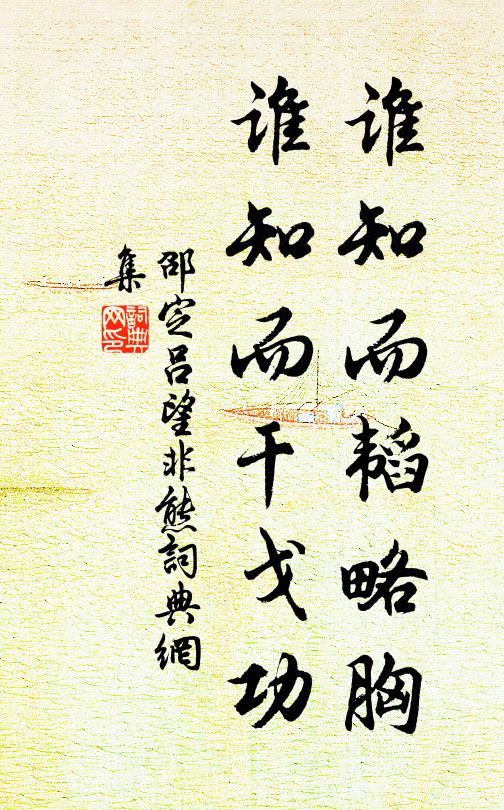 谁知而韬略胸
谁知而干戈功
邵定吕望非熊詞典網
集
詞典
网印